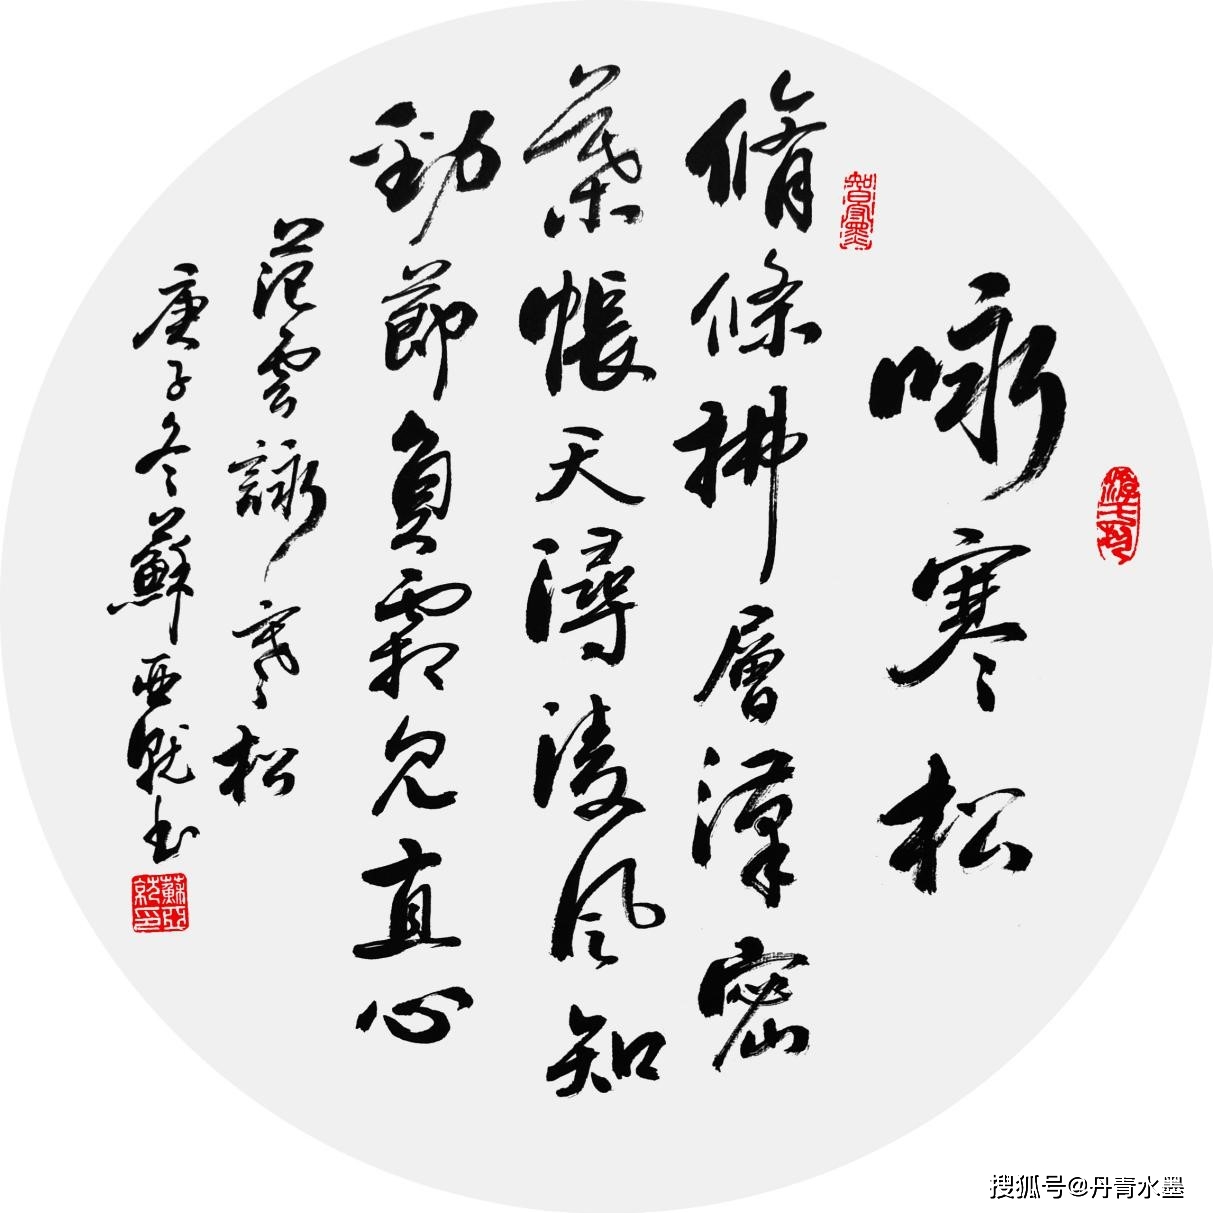 咏寒松
脩條拂層漢密
葉帳天潯淩風知
勁節負霜見直心
范雲詠寒松
庚子冬蘇亞就书
蘇亞就印
搜狐号@丹青水墨